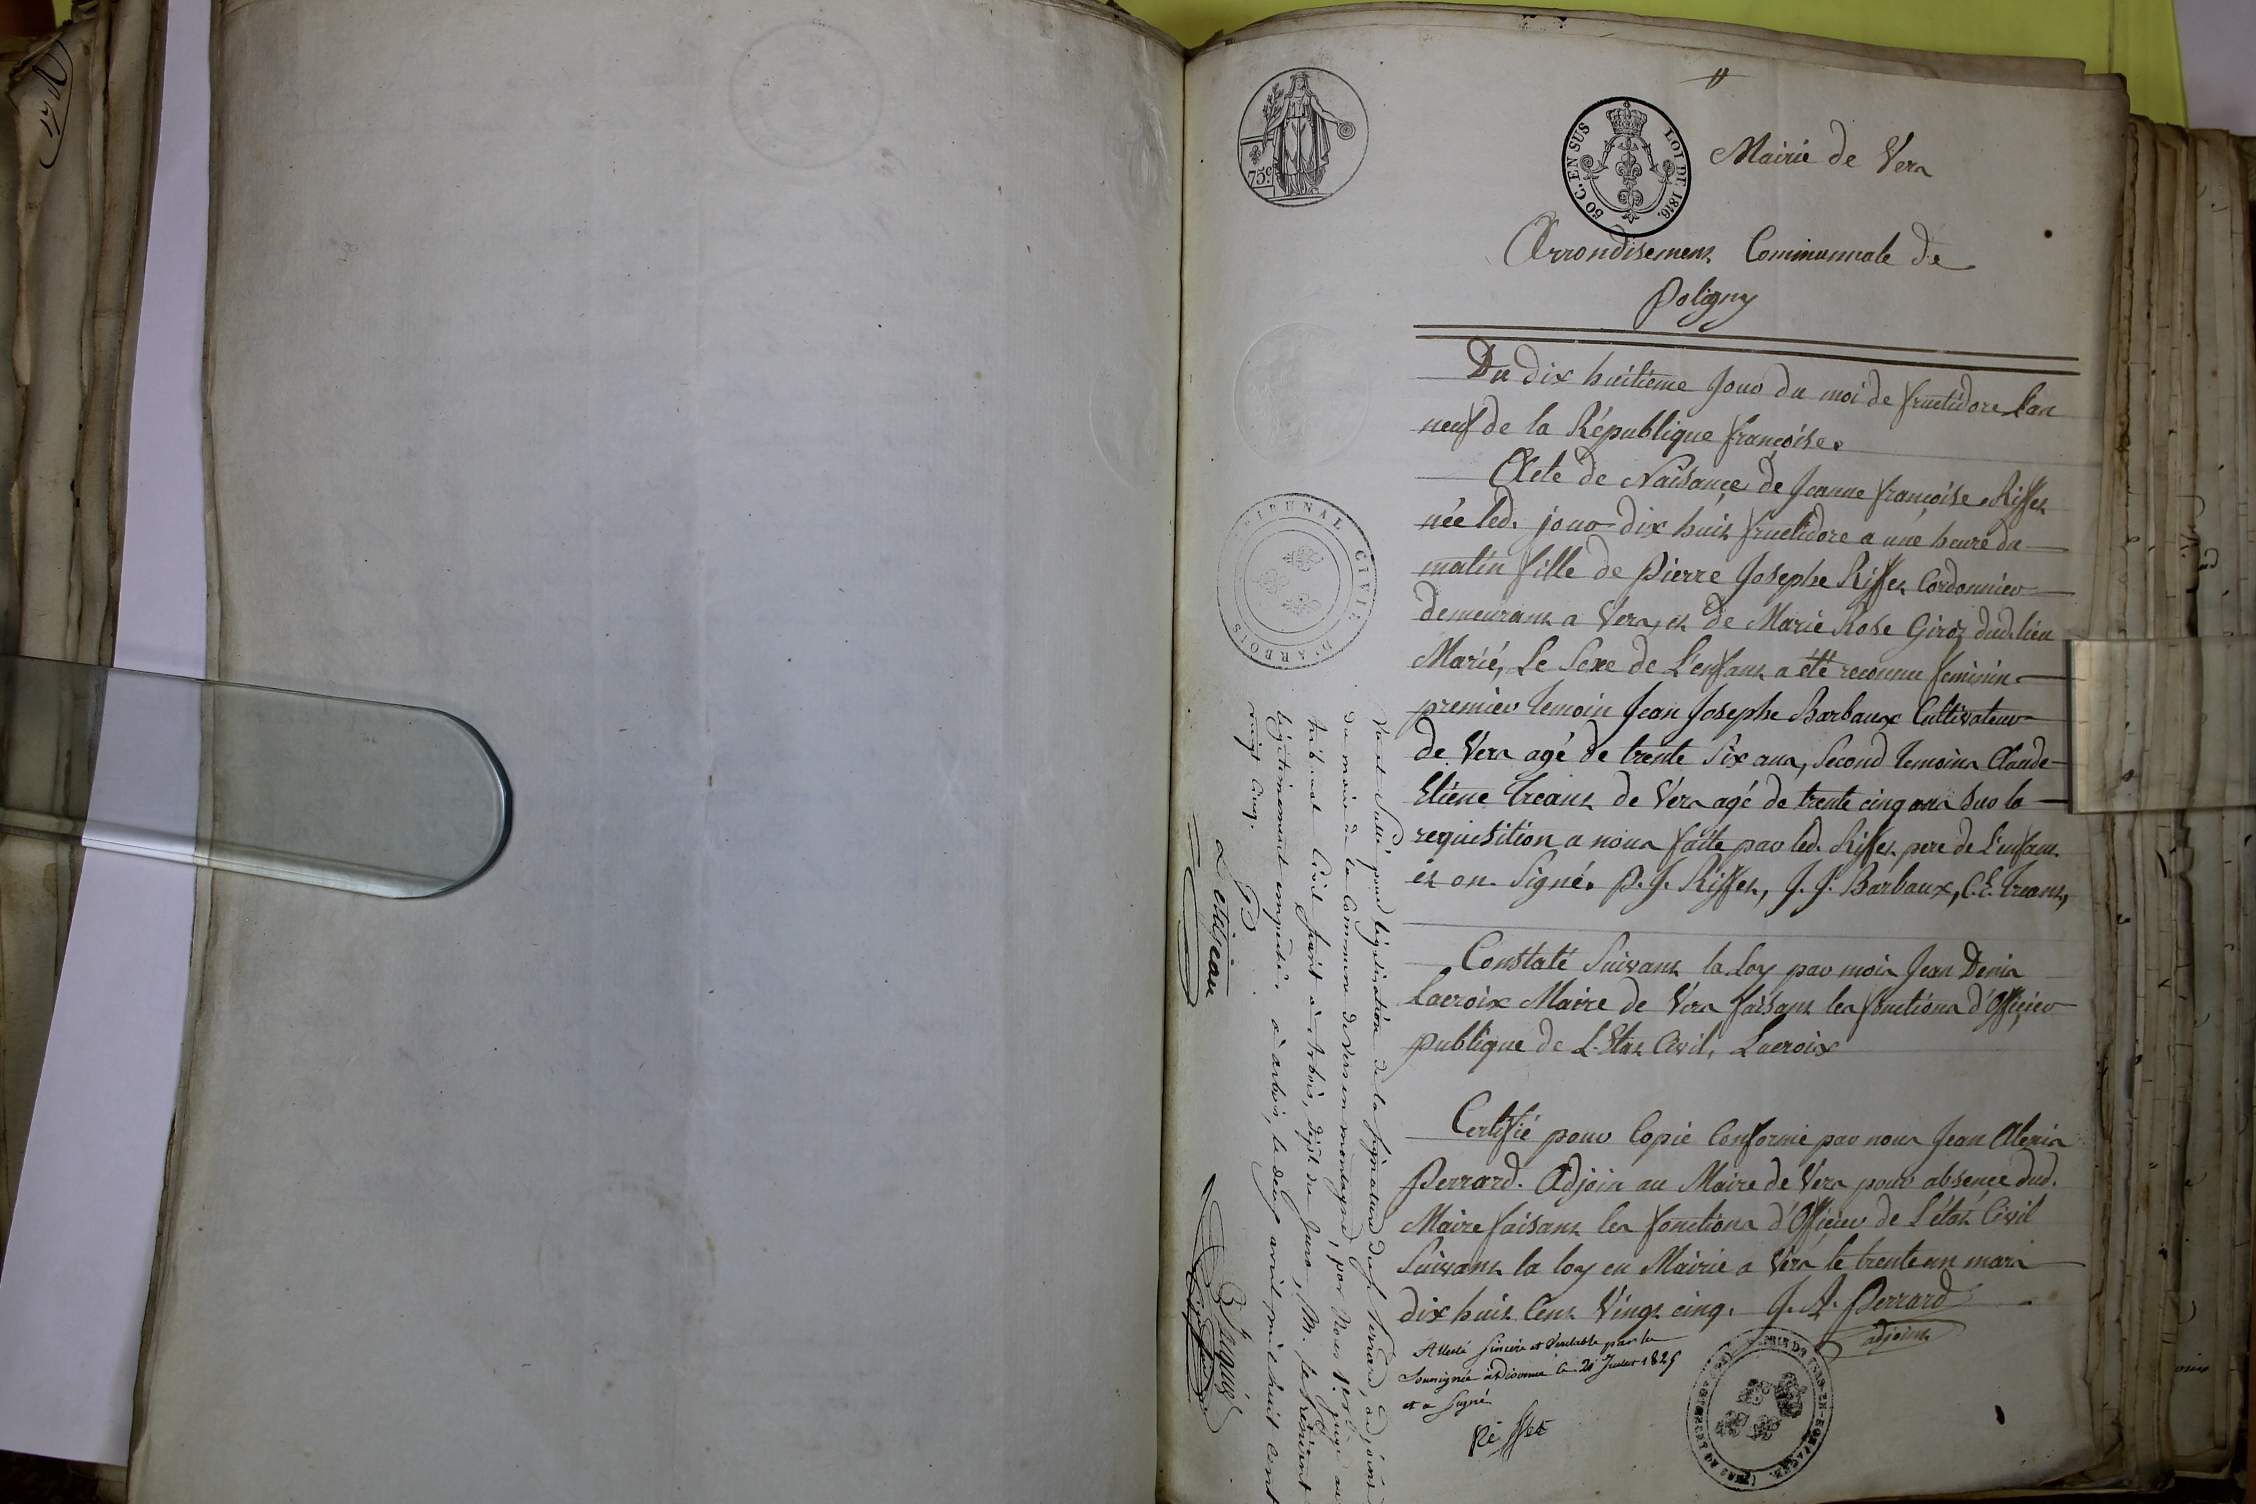 75c.
50 C. EN SUS LOI DE 1816.
Mairie de Vers
Arrondisement Communnale de
Poligny
Du dix huitieme Jour du moi de fructidore l'an
neuf de la République françoise.
Acte de Naisance de Jeanne françoise Riffet
née led. jour dix huit fructidore a une heure du
matin fille de Pierre Josephe Riffet Cordonnier
demeurant a Vers, et de Marie Rose Giroz dud. lieu
Marié, Le Sexe de L'enfant a été reconnu feminin
premier temoin Jean Josephe Barbaux Cultivateur
de Vers agé de trente Six ans, Second temoins Claude
Etiene Treant de Vers agé de trente cinq ans Sur la
requisition a nous faite par led. Riffet pere de L'enfant
et on Signé. P. J. Riffet, J. J. Barbaux, C. E. Treant,
Constaté Suivant la Loy par mois Jean Denis
Lacroix Maire de Vers faisant les fonctions d'Officier
publique de L'Etat Civil, Lacroix
Certifié pour Copie Conforme par nous Jean Alexis
Perrard. Adjoin au Maire de Vers pour absence dud.
Maire faisant les fonctions d'Officier de L'état Civil
Suivant la loy en Mairie a Vers le trente un mars
dix huit Cent Vingt cinq. J. A. Perrard
adjoint
Attesté Sincère et Véritable par la
Sousignée à Divonne le 21 Juillet 1825
et a Signé
Riffet
TRIBUNAL CIVIL D'ARBOIS
Vu et Scellé pour légalisation de la signature du Sr. Perrard, adjoint
du maire de la Commune de Vers en montagne, par Nous 1er juge au
tribunal Civil séant à Arbois, dépt. du Jura, M. le Président
légitimement empêché. à arbois, le deux avril mil huit cent
vingt cinq.